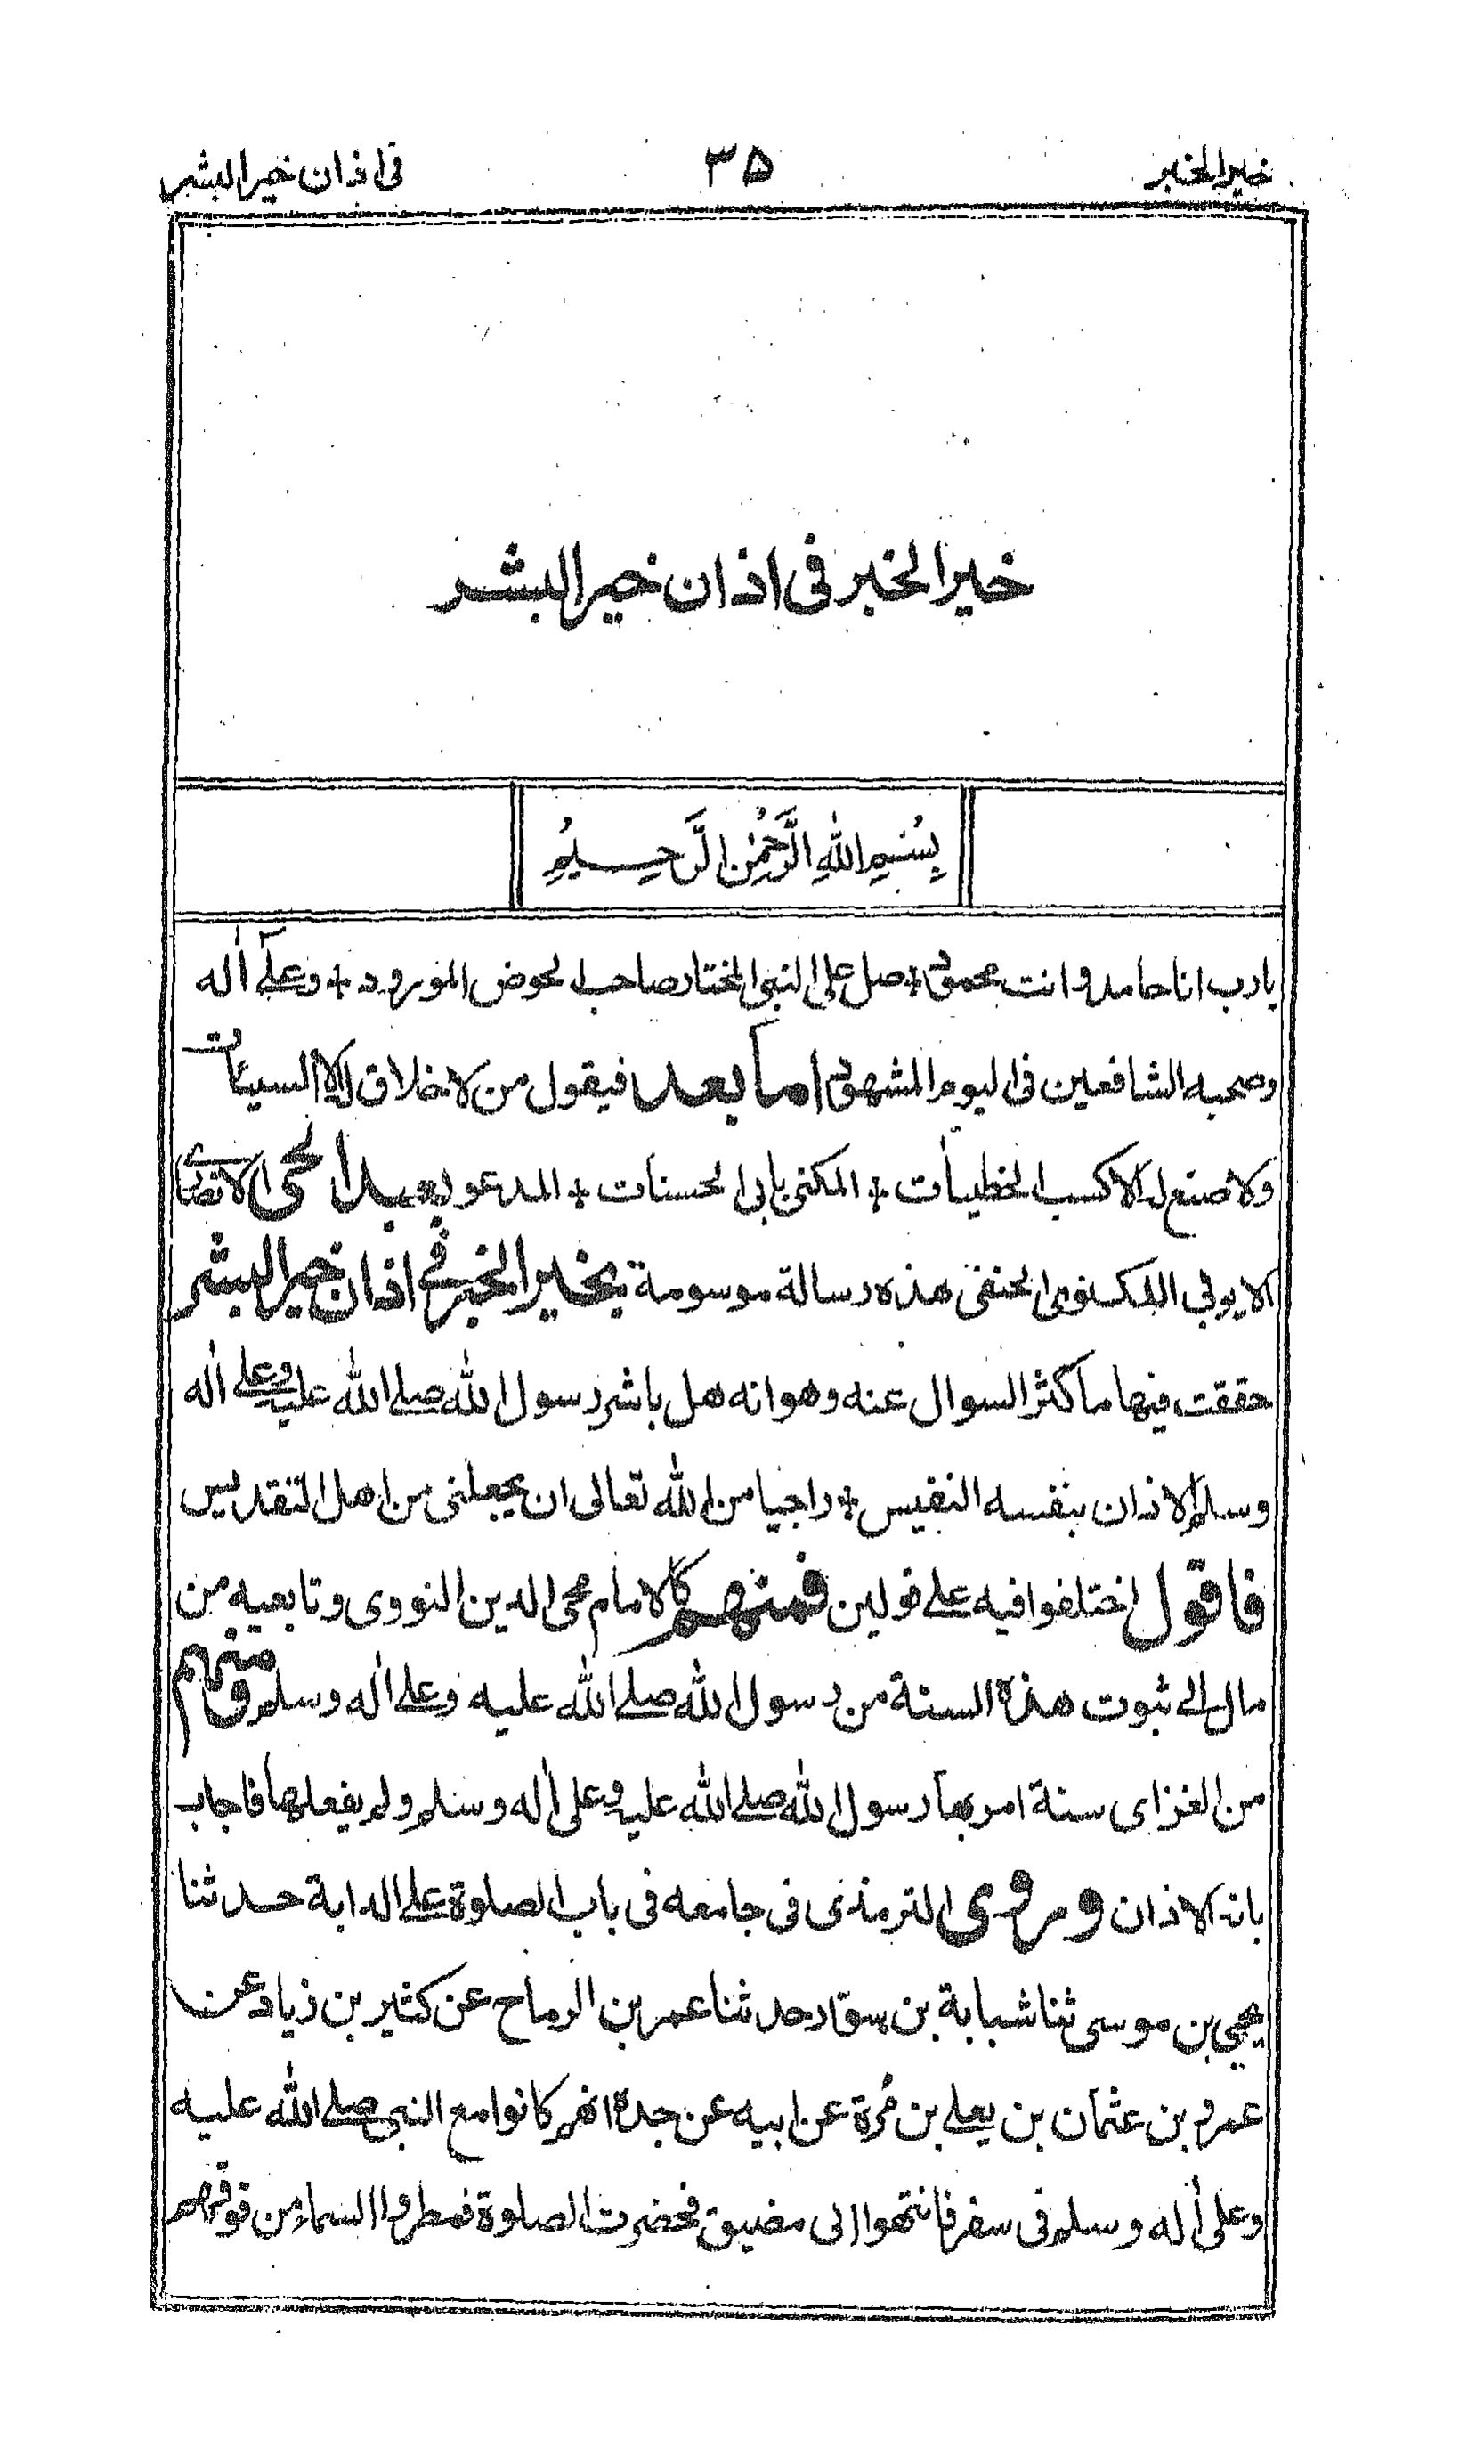 خير الخبر ٣٥ في اذان خير البشر
خير الخبر في اذان خير البشر
بِسْمِ اللهِ الرَّحْمٰنِ الرَّحِيْمِ
يا رب انا حامد وانت محمود + صل على النبي المختار صاحب الحوض المورود + وعلى اٰله
وصحبه الشافعين في اليوم المشهود اما بعد فيقول من لا خلاق له الا السيئات
ولا صنع له الا كسب الخطيات + المكنى بابي الحسنات + المدعو بعبد الحى الانصارى
الايوبي اللكنوى الحنفى هذه رسالة موسومة بخير الخبر في اذان خير البشر
حققت فيها ما كثر السوال عنه وهو انه هل باشر رسول الله صلى الله عليه وعلى اٰله
وسلم الاذان بنفسه النفيس + راجيا من الله تعالى ان يجعلنى من اهل التقديس
فاقول اختلفوا فيه على قولين فمنهم كالامام محى الدين النووى وتابعيه من
مال الى ثبوت هذه السنة من رسول الله صلى الله عليه وعلى اٰله وسلم ومنهم
من الغز اى سنة امر بها رسول الله صلى الله عليه وعلى اٰله وسلم ولم يفعلها فاجاب
بانه الاذان وروى الترمذى فى جامعه فى باب الصلوة على الدابة حدثنا
يحيى بن موسى ثنا شبابة بن سوار حدثنا عمر بن الرماح عن كثير بن زياد عن
عمرو بن عثمان بن يعلى بن مُرة عن ابيه عن جده انهم كانوا مع النبى صلى الله عليه
وعلى اٰله وسلم فى سفر فانتهوا الى مضيق فحضرت الصلوة فمطروا السماء من فوقهم